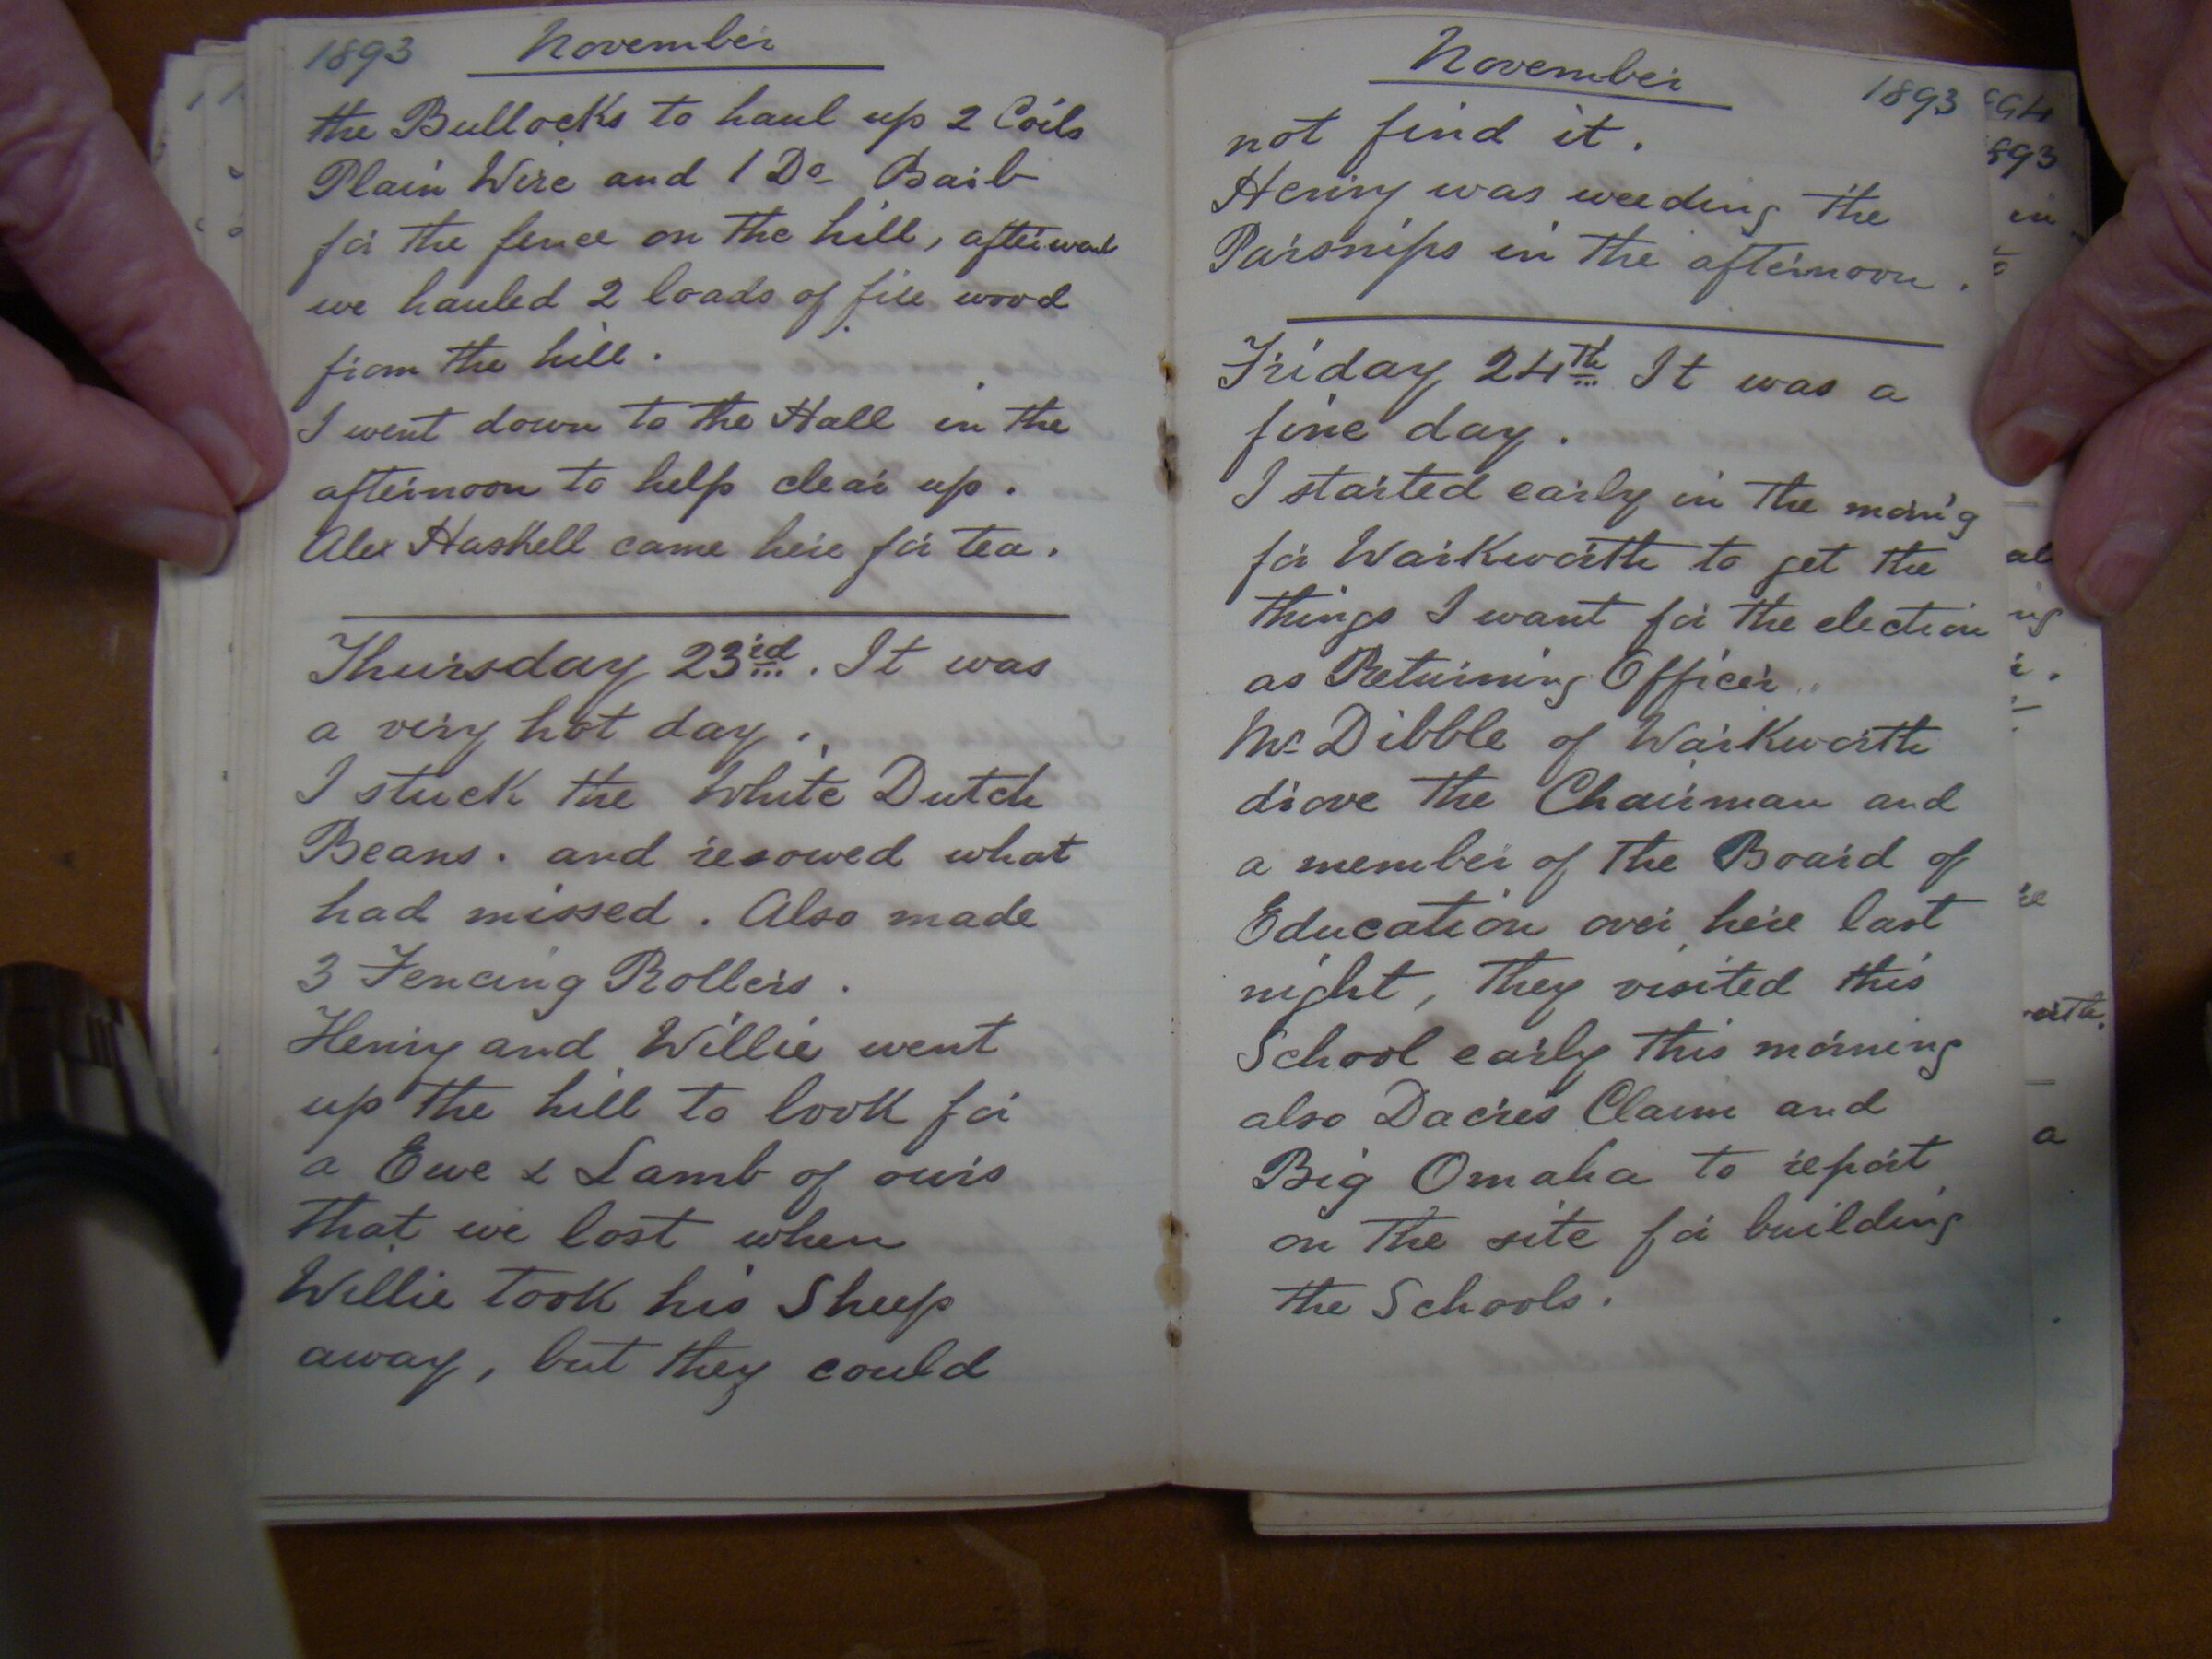 1893 November
the Bullocks to haul up 2 Coils
Plain Wire and 1 Do Barb
for the fence on the hill, afterward
we hauled 2 loads of fire wood
from the hill.
I went down to the Hall in the
afternoon to help clear up.
Alex Haskell came here for tea.
Thursday 23rd. It was
a very hot day.
I stuck the White Dutch
Beans. and resowed what
had missed. Also made
3 Fencing Rollers.
Henry and Willie went
up the hill to look for
a Ewe & Lamb of ours
that we lost when
Willie took his Sheep
away, but they could
November 1893
not find it.
Henry was weeding the
Parsnips in the afternoon.
Friday 24th It was a
fine day.
I started early in the morn'g
for Warkworth to get the
things I want for the election
as Returning Officer.
Mr Dibble of Warkworth
drove the Chairman and
a member of the Board of
Education over here last
night, They visited this
School early this morning
also Dacres Claim and
Big Omaha to report
on the site for building
the Schools.